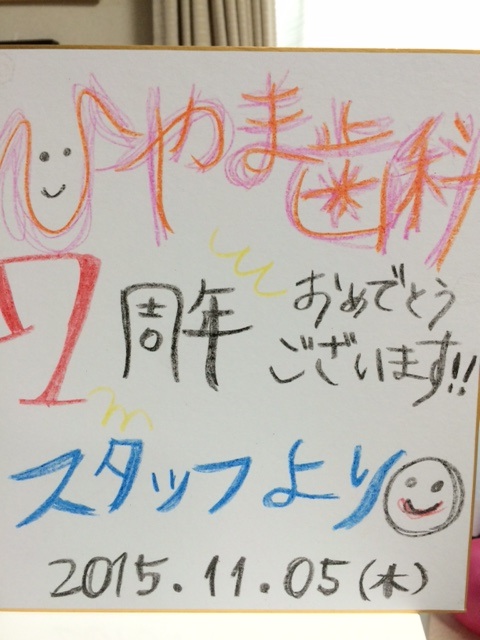 ひやま歯科
7周年 おめでとう
ございます!!
スタッフより
2015.11.05(木)